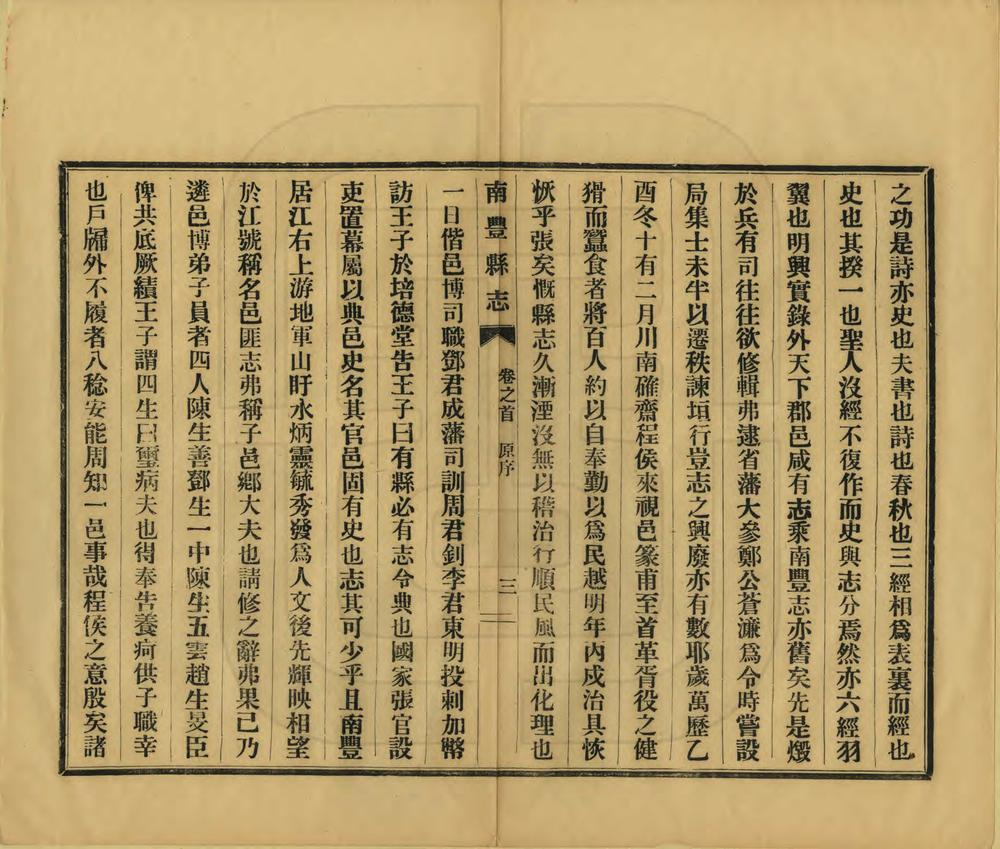 之功是詩亦史也夫書也詩也春秋也三經相爲表裏而經也
史也其揆一也聖人沒經不復作而史與志分焉然亦六經羽
翼也明興實錄外天下郡邑咸有志乘南豐志亦舊矣先是燬
於兵有司往往欲修輯弗逮省藩大參鄭公蒼濂爲令時嘗設
局集士未半以遷秩諫垣行豈志之興廢亦有數耶歲萬歷乙
酉冬十有二月川南確齋程侯來視邑篆甫至首革胥役之健
猾而蠶食者將百人約以自奉勤以爲民越明年丙戌治具恢
恢乎張矣慨縣志久漸湮沒無以稽治行順民風而出化理也
南豐縣志 卷之首 原序 三
一日偕邑博司職鄧君成藩司訓周君釗李君東明投刺加幣
訪王子於培德堂告王子曰有縣必有志令典也國家張官設
吏置幕屬以典邑史名其官邑固有史也志其可少乎且南豐
居江右上游地軍山盱水炳靈毓秀發爲人文後先輝映相望
於江號稱名邑匪志弗稱子邑鄉大夫也請修之辭弗果已乃
遴邑博弟子員者四人陳生善鄧生一中陳生五雲趙生旻臣
俾共底厥績王子謂四生曰璽病夫也得奉告養疴供子職幸
也戶牖外不履者八稔安能周知一邑事哉程侯之意殷矣諸